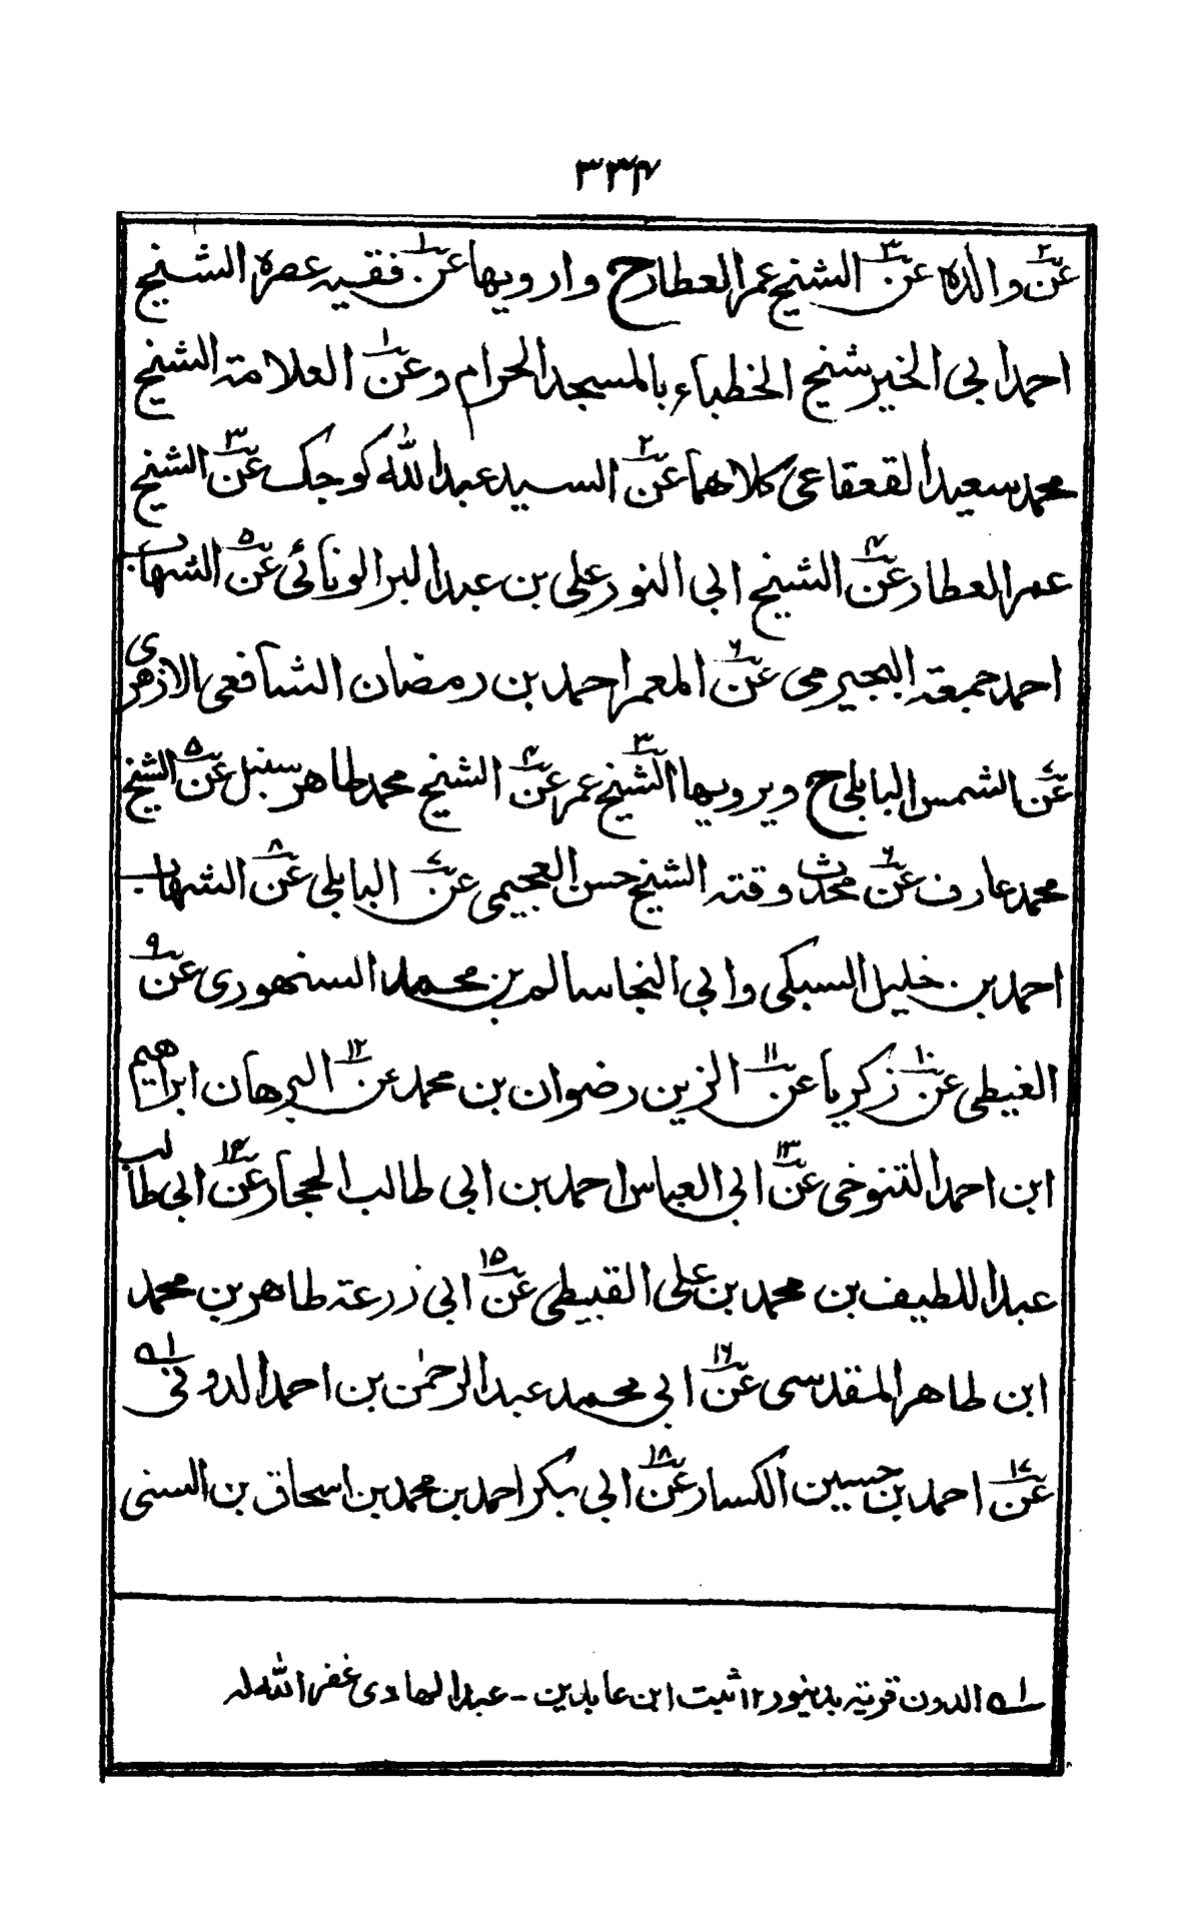 ٣٣٤
عن٢ والده عن٣ الشيخ عمر العطار ح وارويها عن١ فقيه عصره الشيخ
احمد ابى الخير شيخ الخطباء بالمسجد الحرام وعن١ العلامة الشيخ
محمد سعيد القعقاعى كلاهما عن٢ السيد عبد الله كوجك عن٣ الشيخ
عمر العطار عن٤ الشيخ ابى النور على بن عبد البر الونائى عن٥ الشهاب
احمد جمعة البجيرمى عن٦ المعمر احمد بن رمضان الشافعى الازهرى
عن٧ الشمس البابلى ح ويرويها الشيخ٣ عمر عن٤ الشيخ محمد طاهر سنبل عن٥ الشيخ
محمد عارف عن٦ محدث وقته الشيخ حسن العجيمى عن٧ البابلى عن٨ الشهاب
احمد بن خليل السبكى وابى النجا سالم بن محمد السنهورى عن٩
الغيطى عن١٠ زكريا عن١١ الزين رضوان بن محمد عن١٢ البرهان ابراهيم
ابن احمد التنوخى عن١٣ ابى العباس احمد بن ابى طالب الحجار عن١٤ ابى طالب
عبد اللطيف بن محمد بن على القبيطى عن١٥ ابى زرعة طاهر بن محمد
ابن طاهر المقدسى عن١٦ ابى محمد عبد الرحمٰن بن احمد الدونى ١ه
عن١٧ احمد بن حسين الكسار عن١٨ ابى بكر احمد بن محمد بن اسحاق بن السنى
١ه الدون قرية بدينور ١٢ ثبت ابن عابدين - عبد الهادى غفر الله له